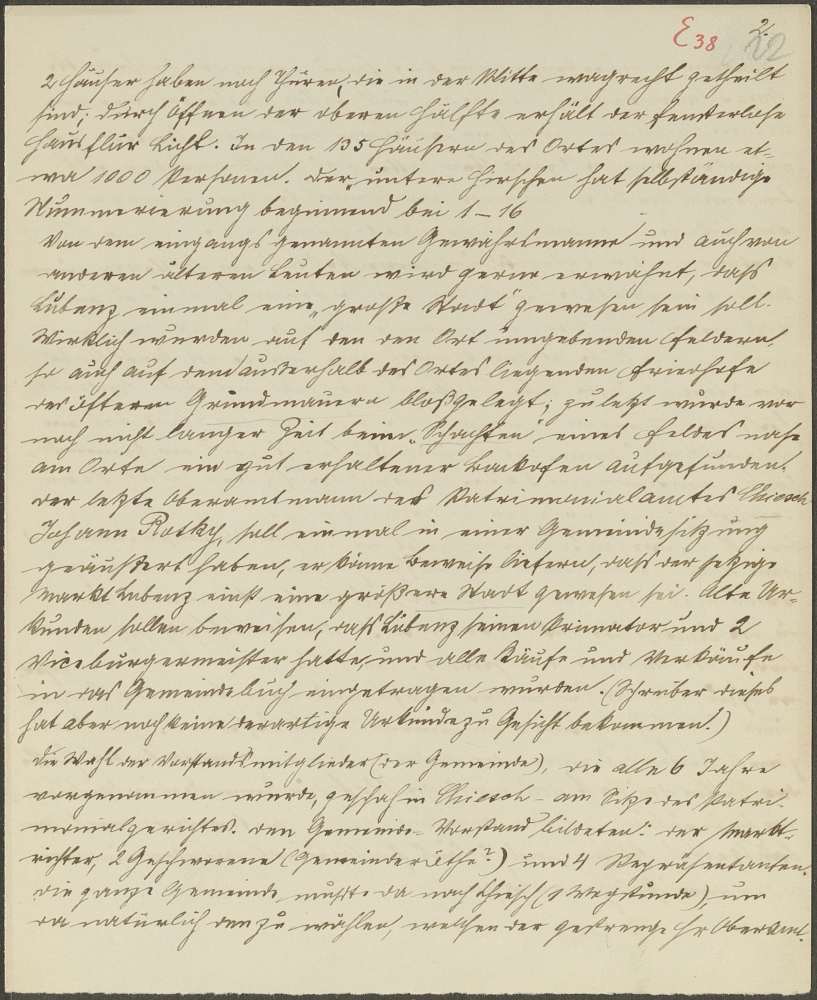 E 38 2. 22
2 Häuser haben noch Thüren, die in der Mitte wagrecht getheilt
sind; durch Öffnen der oberen Hälfte erhält der fensterlose
Hausflur Licht. In den 135 Häusern des Ortes wohnen et-
wa 1000 Personen. Der „untere Hirschen hat selbständige
Nummerierung beginnend bei 1–16
Von dem eingangs genannten Gewährsmanne und auch von
anderen älteren Leuten wird gerne erwähnt, dass
Lubenz einmal eine „große Stadt“ gewesen sein soll.
Wirklich wurden auf den den Ort umgebenden Feldern,
so auch auf dem ausserhalb des Ortes liegenden Friedhofe
des öfteren Grundmauern bloßgelegt; zuletzt wurde vor
noch nicht langer Zeit beim „Schachten“ eines Feldes nahe
am Orte ein gut erhaltener Backofen aufgefunden.
Der letzte Oberamtmann des Patrimonialamtes Chiesch
Johann Rotky, soll einmal in einer Gemeindesitzung
geäußert haben, er könne Beweise liefern, dass der jetzige
Markt Lubenz einst eine größere Stadt gewesen sei. Alte Ur-
kunden sollen beweisen, dass Lubenz seinen Primator und 2
Viceburgermeister hatte, und alle Käufe und Verkäufe
in das Gemeindebuch eingetragen wurden. (Schreiber dieses
hat aber noch keine derartige Urkunde zu Gesicht bekommen.)
Die Wahl der Vorstandsmitglieder (der Gemeinde), die alle 6 Jahre
vorgenommen wurde, geschah in Chiesch – am Sitze des Patri-
monialgerichtes. Den Gemeinde-Vorstand bildeten: der Markt-
richter, 2 Geschworene (Gemeinderäthe?) und 4 Repräsentanten.
Die ganze Gemeinde musste da nach Chiesch (1 Wegstunde), um
da natürlich den zu wählen, welchen der gestrenge Hr Oberamt-